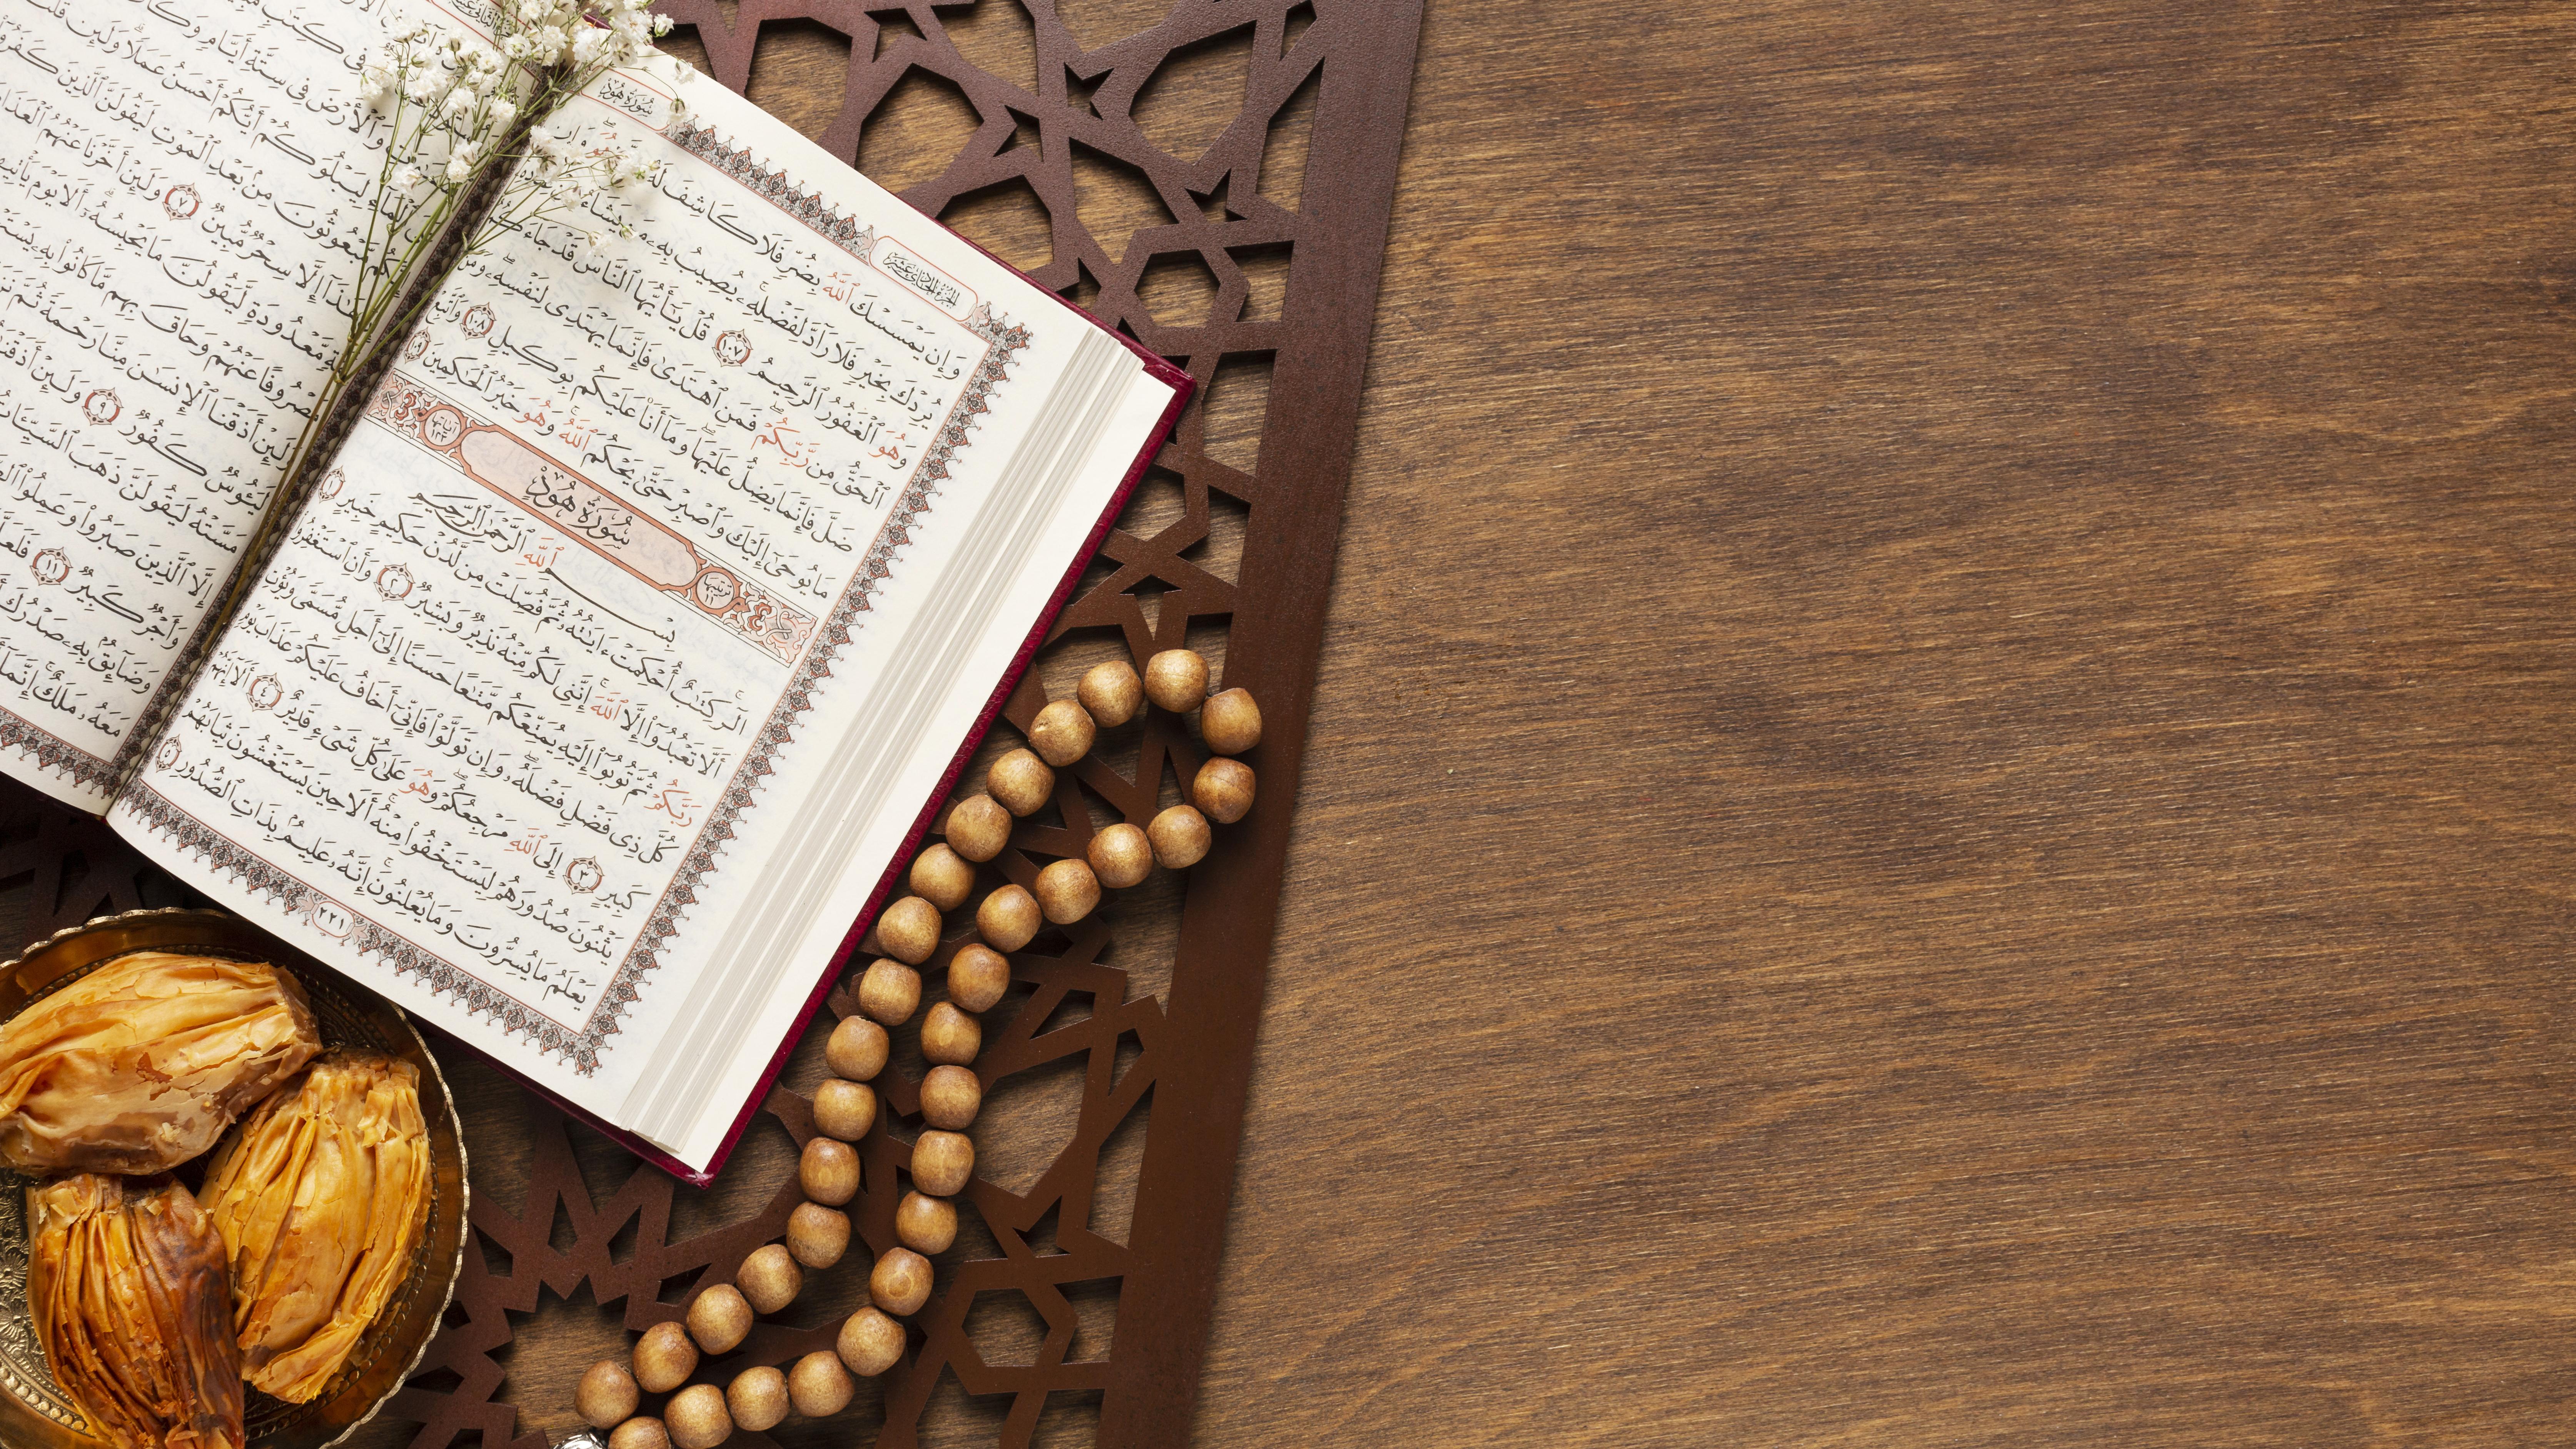 الجزء الحادي عشر
سُورَةُ هُودٍ
وَإِن يَمْسَسْكَ ٱللَّهُ بِضُرٍّ فَلَا كَاشِفَ لَهُۥٓ هُوَ ۖ وَإِن
يُرِدْكَ بِخَيْرٍ فَلَا رَآدَّ لِفَضْلِهِۦ ۚ يُصِيبُ بِهِۦ مَن يَشَآءُ
وَهُوَ ٱلْغَفُورُ ٱلرَّحِيمُ ١٠٧ قُلْ يَٰٓأَيُّهَا ٱلنَّاسُ قَدْ جَآءَكُمُ
ٱلْحَقُّ مِن رَّبِّكُمْ ۖ فَمَنِ ٱهْتَدَىٰ فَإِنَّمَا يَهْتَدِى لِنَفْسِهِۦ ۖ وَمَن
ضَلَّ فَإِنَّمَا يَضِلُّ عَلَيْهَا ۖ وَمَآ أَنَا۠ عَلَيْكُم بِوَكِيلٍ ١٠٨ وَٱتَّبِعْ
مَا يُوحَىٰٓ إِلَيْكَ وَٱصْبِرْ حَتَّىٰ يَحْكُمَ ٱللَّهُ ۚ وَهُوَ خَيْرُ ٱلْحَٰكِمِينَ ١٠٩
ترتيبها ١١ سُورَةُ هُودٍ آياتها ١٢٣
بِسْمِ ٱللَّهِ ٱلرَّحْمَٰنِ ٱلرَّحِيمِ
الٓر ۚ كِتَٰبٌ أُحْكِمَتْ ءَايَٰتُهُۥ ثُمَّ فُصِّلَتْ مِن لَّدُنْ حَكِيمٍ خَبِيرٍ ١
أَلَّا تَعْبُدُوٓا۟ إِلَّا ٱللَّهَ ۚ إِنَّنِى لَكُم مِّنْهُ نَذِيرٌ وَبَشِيرٌ ٢ وَأَنِ ٱسْتَغْفِرُوا۟
رَبَّكُمْ ثُمَّ تُوبُوٓا۟ إِلَيْهِ يُمَتِّعْكُم مَّتَٰعًا حَسَنًا إِلَىٰٓ أَجَلٍ مُّسَمًّى وَيُؤْتِ
كُلَّ ذِى فَضْلٍ فَضْلَهُۥ ۖ وَإِن تَوَلَّوْا۟ فَإِنِّىٓ أَخَافُ عَلَيْكُمْ عَذَابَ يَوْمٍ
كَبِيرٍ ٣ إِلَى ٱللَّهِ مَرْجِعُكُمْ ۖ وَهُوَ عَلَىٰ كُلِّ شَىْءٍ قَدِيرٌ ٤ أَلَآ إِنَّهُمْ
يَثْنُونَ صُدُورَهُمْ لِيَسْتَخْفُوا۟ مِنْهُ ۚ أَلَا حِينَ يَسْتَغْشُونَ ثِيَابَهُمْ
يَعْلَمُ مَا يُسِرُّونَ وَمَا يُعْلِنُونَ ۚ إِنَّهُۥ عَلِيمٌۢ بِذَاتِ ٱلصُّدُورِ ٥
٢٢١
فِى كِتَٰبٍ
وَٱلْأَرْضَ فِى سِتَّةِ أَيَّامٍ وَكَانَ
ٱلْمَآءِ لِيَبْلُوَكُمْ أَيُّكُمْ أَحْسَنُ عَمَلًا ۗ وَلَئِن قُلْتَ
مَّبْعُوثُونَ مِنۢ بَعْدِ ٱلْمَوْتِ لَيَقُولَنَّ ٱلَّذِينَ
هَٰذَآ إِلَّا سِحْرٌ مُّبِينٌ ٧ وَلَئِنْ أَخَّرْنَا عَنْهُمُ ٱلْعَذَابَ
مَّعْدُودَةٍ لَّيَقُولُنَّ مَا يَحْبِسُهُۥٓ ۗ أَلَا يَوْمَ يَأْتِيهِمْ
مَصْرُوفًا عَنْهُمْ وَحَاقَ بِهِم مَّا كَانُوا۟ بِهِۦ
وَلَئِنْ أَذَقْنَا ٱلْإِنسَٰنَ مِنَّا رَحْمَةً ثُمَّ
لَيَـُٔوسٌ كَفُورٌ ٩ وَلَئِنْ
مَسَّتْهُ لَيَقُولَنَّ ذَهَبَ ٱلسَّيِّـَٔاتُ
إِلَّا ٱلَّذِينَ صَبَرُوا۟ وَعَمِلُوا۟
وَأَجْرٌ كَبِيرٌ ١١
وَضَآئِقٌۢ بِهِۦ صَدْرُكَ
مَعَهُۥ مَلَكٌ ۚ إِنَّمَآ